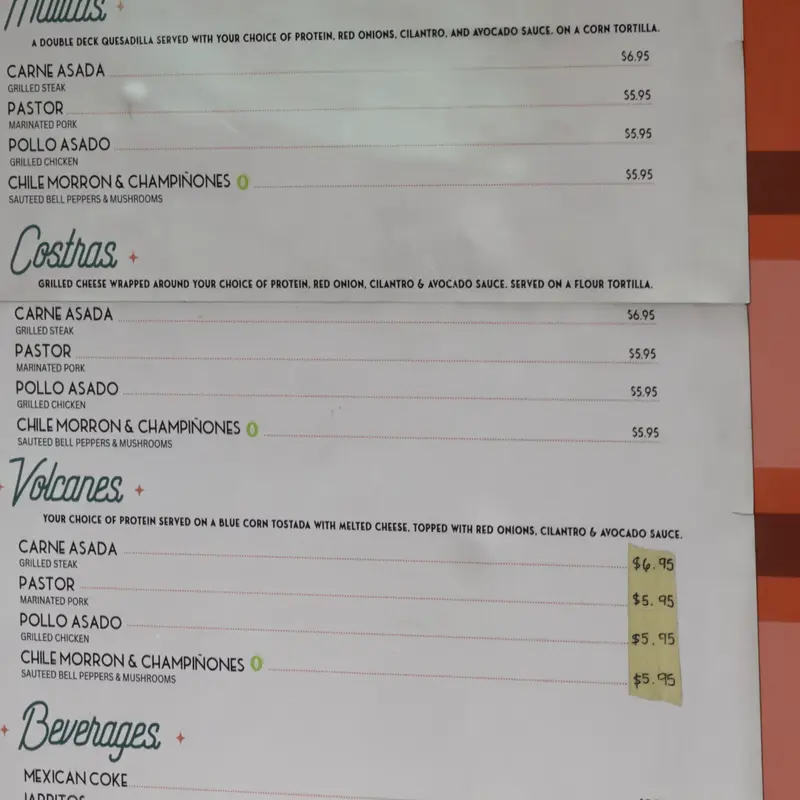 Mulitas
A DOUBLE DECK QUESADILLA SERVED WITH YOUR CHOICE OF PROTEIN, RED ONIONS, CILANTRO, AND AVOCADO SAUCE. ON A CORN TORTILLA.
CARNE ASADA $6.95
GRILLED STEAK
PASTOR $5.95
MARINATED PORK
POLLO ASADO $5.95
GRILLED CHICKEN
CHILE MORRON & CHAMPIÑONES $5.95
SAUTEED BELL PEPPERS & MUSHROOMS
Costras
GRILLED CHEESE WRAPPED AROUND YOUR CHOICE OF PROTEIN, RED ONION, CILANTRO & AVOCADO SAUCE. SERVED ON A FLOUR TORTILLA.
CARNE ASADA $6.95
GRILLED STEAK
PASTOR $5.95
MARINATED PORK
POLLO ASADO $5.95
GRILLED CHICKEN
CHILE MORRON & CHAMPIÑONES $5.95
SAUTEED BELL PEPPERS & MUSHROOMS
Volcanes
YOUR CHOICE OF PROTEIN SERVED ON A BLUE CORN TOSTADA WITH MELTED CHEESE, TOPPED WITH RED ONIONS, CILANTRO & AVOCADO SAUCE.
CARNE ASADA $6.95
GRILLED STEAK
PASTOR $5.95
MARINATED PORK
POLLO ASADO $5.95
GRILLED CHICKEN
CHILE MORRON & CHAMPIÑONES $5.95
SAUTEED BELL PEPPERS & MUSHROOMS
Beverages
MEXICAN COKE
JARRITOS